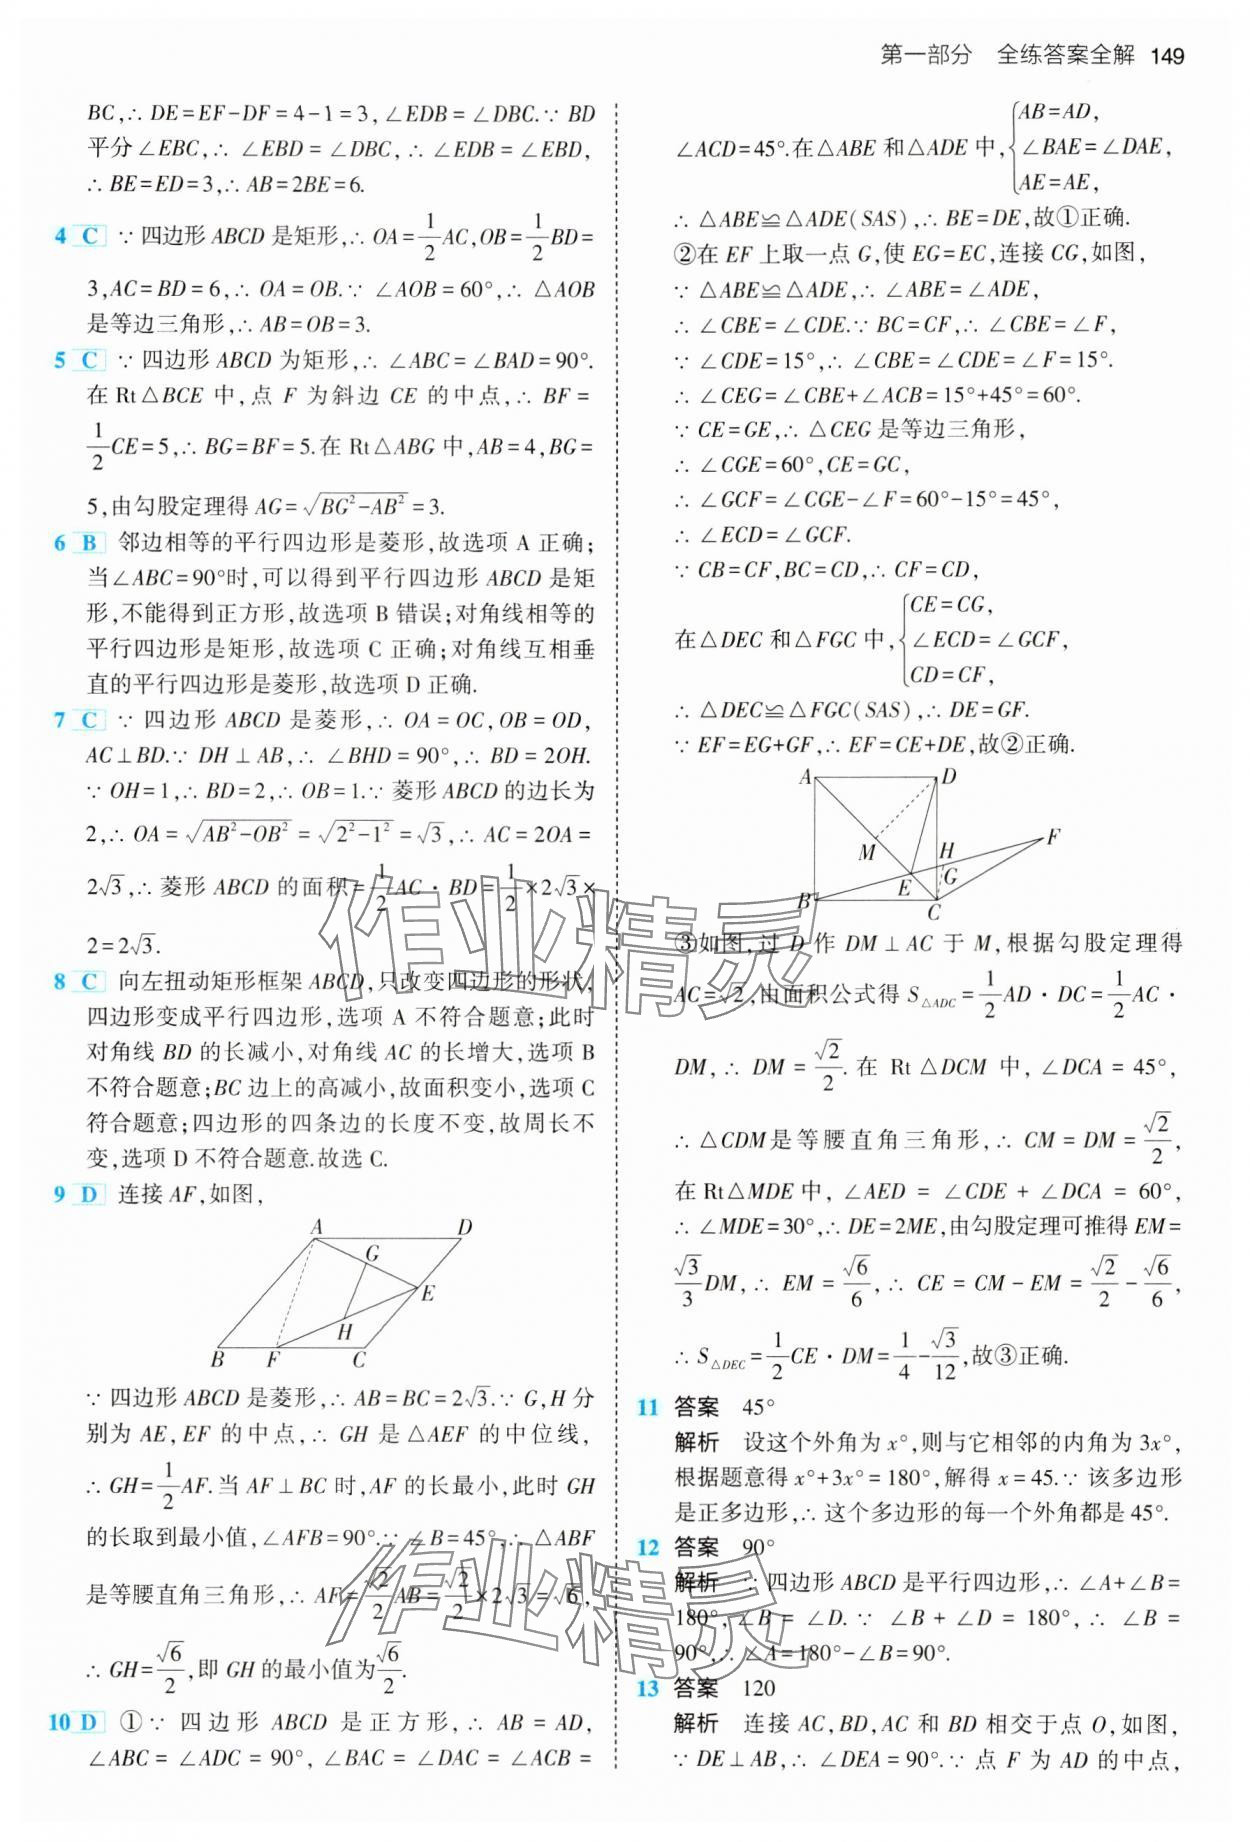 第一部分 全练答案全解 149
BC,∴ DE=EF-DF=4-1=3,∠EDB=∠DBC.∵ BD
平分∠EBC,∴ ∠EBD=∠DBC,∴ ∠EDB=∠EBD,
∴ BE=ED=3,∴ AB=2BE=6.
4 C ∵ 四边形 ABCD 是矩形,∴ OA=1/2AC,OB=1/2BD=
3,AC=BD=6,∴ OA=OB.∵ ∠AOB=60°,∴ △AOB
是等边三角形,∴ AB=OB=3.
5 C ∵ 四边形 ABCD 为矩形,∴ ∠ABC=∠BAD=90°.
在 Rt△BCE 中,点 F 为斜边 CE 的中点,∴ BF=
1/2CE=5,∴ BG=BF=5.在 Rt△ABG 中,AB=4,BG=
5,由勾股定理得 AG=√(BG²-AB²)=3.
6 B 邻边相等的平行四边形是菱形,故选项 A 正确;
当∠ABC=90°时,可以得到平行四边形 ABCD 是矩
形,不能得到正方形,故选项 B 错误;对角线相等的
平行四边形是矩形,故选项 C 正确;对角线互相垂
直的平行四边形是菱形,故选项 D 正确.
7 C ∵ 四边形 ABCD 是菱形,∴ OA=OC,OB=OD,
AC⊥BD.∵ DH⊥AB,∴ ∠BHD=90°,∴ BD=2OH.
∵ OH=1,∴ BD=2,∴ OB=1.∵ 菱形 ABCD 的边长为
2,∴ OA=√(AB²-OB²)=√(2²-1²)=√3,∴ AC=2OA=
2√3,∴ 菱形 ABCD 的面积=1/2AC·BD=1/2×2√3×
2=2√3.
8 C 向左扭动矩形框架 ABCD,只改变四边形的形状,
四边形变成平行四边形,选项 A 不符合题意;此时
对角线 BD 的长减小,对角线 AC 的长增大,选项 B
不符合题意;BC 边上的高减小,故面积变小,选项 C
符合题意;四边形的四条边的长度不变,故周长不
变,选项 D 不符合题意.故选 C.
9 D 连接 AF,如图,
A D
G
E
H
B F C
∵ 四边形 ABCD 是菱形,∴ AB=BC=2√3.∵ G,H 分
别为 AE,EF 的中点,∴ GH 是△AEF 的中位线,
∴ GH=1/2AF.当 AF⊥BC 时,AF 的长最小,此时 GH
的长取到最小值,∠AFB=90°.∵ ∠B=45°,∴ △ABF
是等腰直角三角形,∴ AF=√2/2AB=√2/2×2√3=√6,
∴ GH=√6/2,即 GH 的最小值为√6/2.
10 D ①∵ 四边形 ABCD 是正方形,∴ AB=AD,
∠ABC=∠ADC=90°,∠BAC=∠DAC=∠ACB=
∠ACD=45°.在△ABE 和△ADE 中,{AB=AD,
∠BAE=∠DAE,
AE=AE,
∴ △ABE≌△ADE(SAS),∴ BE=DE,故①正确.
②在 EF 上取一点 G,使 EG=EC,连接 CG,如图,
∵ △ABE≌△ADE,∴ ∠ABE=∠ADE,
∴ ∠CBE=∠CDE.∵ BC=CF,∴ ∠CBE=∠F,
∵ ∠CDE=15°,∴ ∠CBE=∠CDE=∠F=15°.
∴ ∠CEG=∠CBE+∠ACB=15°+45°=60°.
∵ CE=GE,∴ △CEG 是等边三角形,
∴ ∠CGE=60°,CE=GC,
∴ ∠GCF=∠CGE-∠F=60°-15°=45°,
∴ ∠ECD=∠GCF.
∵ CB=CF,BC=CD,∴ CF=CD,
在△DEC 和△FGC 中,{CE=CG,
∠ECD=∠GCF,
CD=CF,
∴ △DEC≌△FGC(SAS),∴ DE=GF.
∵ EF=EG+GF,∴ EF=CE+DE,故②正确.
A D
F
M H
E G
B C
③如图,过 D 作 DM⊥AC 于 M,根据勾股定理得
AC=√2,由面积公式得 S△ADC=1/2AD·DC=1/2AC·
DM,∴ DM=√2/2.在 Rt△DCM 中,∠DCA=45°,
∴ △CDM是等腰直角三角形,∴ CM=DM=√2/2,
在 Rt△MDE 中,∠AED=∠CDE+∠DCA=60°,
∴ ∠MDE=30°,∴ DE=2ME,由勾股定理可推得 EM=
√3/3DM,∴ EM=√6/6,∴ CE=CM-EM=√2/2-√6/6,
∴ S△DEC=1/2CE·DM=1/4-√3/12,故③正确.
11 答案 45°
解析 设这个外角为 x°,则与它相邻的内角为 3x°,
根据题意得 x°+3x°=180°,解得 x=45.∵ 该多边形
是正多边形,∴ 这个多边形的每一个外角都是 45°.
12 答案 90°
解析 ∵ 四边形 ABCD 是平行四边形,∴ ∠A+∠B=
180°,∠B=∠D.∵ ∠B+∠D=180°,∴ ∠B=
90°,∴ ∠A=180°-∠B=90°.
13 答案 120
解析 连接 AC,BD,AC 和 BD 相交于点 O,如图,
∵ DE⊥AB,∴ ∠DEA=90°.∵ 点 F 为 AD 的中点,
作业精灵
作业精灵